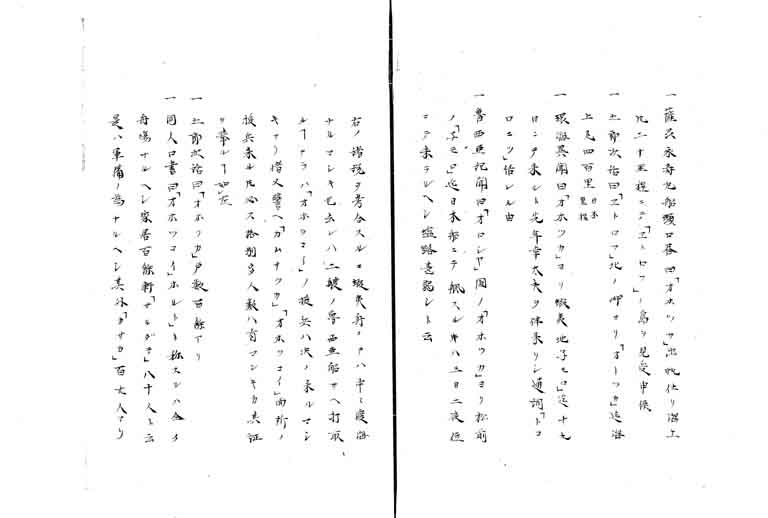 一 薩 永寿丸船頭口書曰「オホツカ」出帆仕リ海上
凡二十里程ニテ「ヱトロフ」ノ島ヲ見受申候
一 土郎次話曰「ヱトロフ」北ノ岬ヨリ「オホツカ」迄海
上凡四百里 日本里程
一 環海異聞曰「オホツカ」ヨリ蝦夷地子モロ迄十七
日ニテ来ルト先年幸太夫ヲ伴来リシ通詞「トコ
ロコツ」語レル由
一 魯西亜記聞曰「オロシヤ」国ノ「オホツカ」ヨリ松前
ノ「子モロ」迄日本船ニテ颿スルキハ三日二夜位
ニテ来ラルヘシ 路 シト云
右ノ諸説ヲ考合スルニ蝦夷舟ニテハ中々渡海
ナルマシキ 云レハ二艘ノ魯西亜船サヘ打取
ルアラハ「オホツコイ」ノ援兵ハ次ノ来ルマシ
キヤ 又 ヘ「カムサツカ」「オホツコイ」両所ノ
援兵来ル 必ス格別多人数ハ有マシキカ其証
ヲ挙ル如左
一 土郎次話曰「オホツカ」戸数百軒アリ
一 同人口書曰「オホツコイ」「ホルト」ト称スルハ
舟場ナルヘシ家居百餘軒「サルダ」八十人ト云
是ハ軍備ノ為ナルヘシ其外「タサカ」百六人アリ